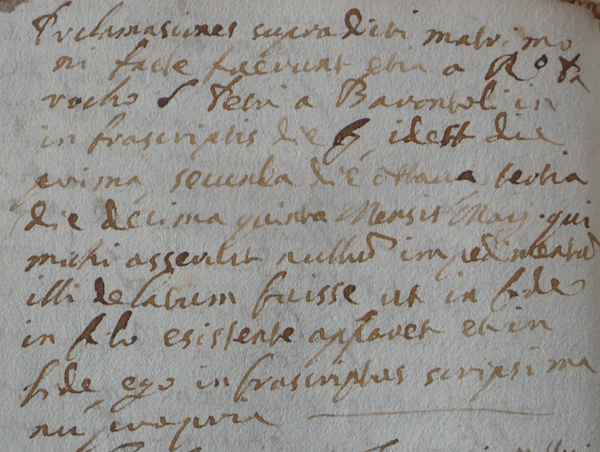 Proclamasiones supra diti matrimo
ni facte fuerunt etia a Rº Pa
rocho S Petri a Barontoli in
infrascriptis die idest die
prima, secunda die ottava tertia
die decima quinta Mensis Maij qui
michi asseruit nullū impedimentū
illi delatum fuisse ut in fide
in filo esistente apparet et in
fide ego infrascriptus scripsi ma
nu propria